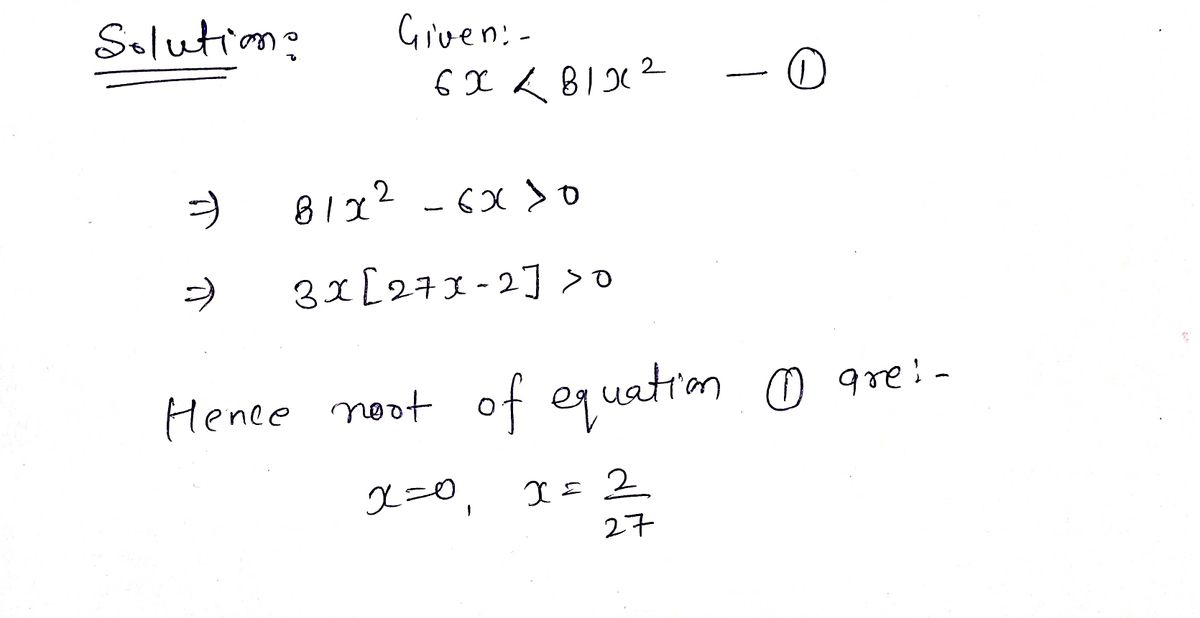 Solution: Given:-
6x < 81x² — ①
⇒ 81x² - 6x > 0
⇒ 3x[27x-2] > 0
Hence root of equation ① are:-
x=0, x = 2/27